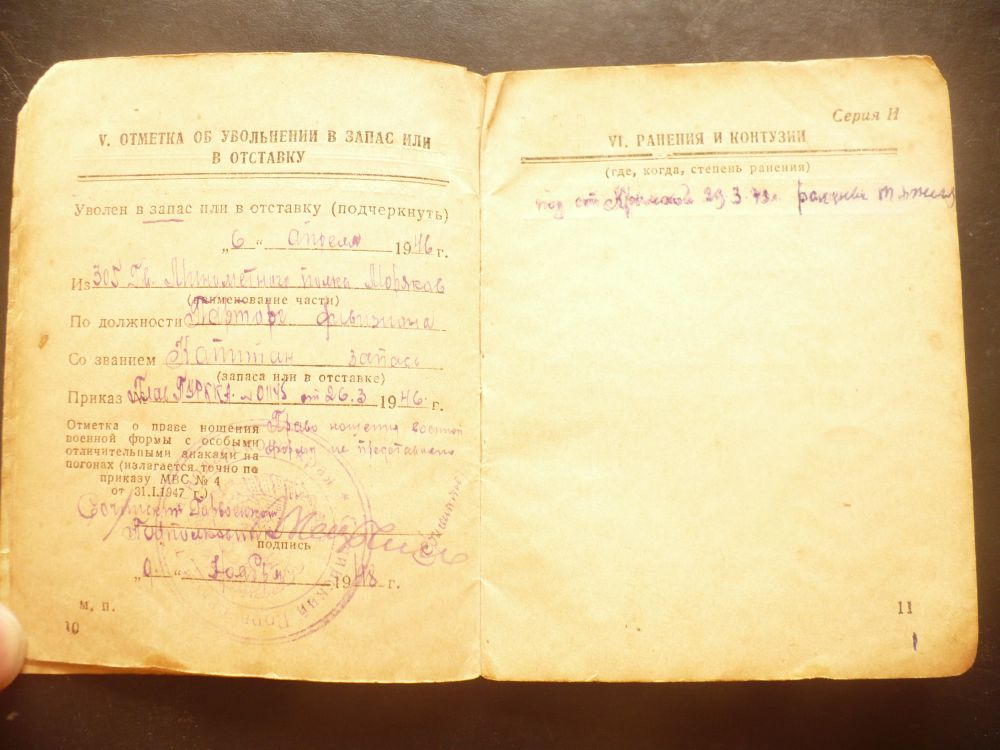 V. ОТМЕТКА ОБ УВОЛЬНЕНИИ В ЗАПАС ИЛИ
В ОТСТАВКУ
Уволен в запас или в отставку (подчеркнуть)
„6“ апреля 1946 г.
Из 305 Гв. Минометного полка Моряков
(наименование части)
По должности Парторг дивизиона
Со званием Капитан запаса
(запаса или в отставке)
Приказ ПУРККА № 01145 от 26.3 1946 г.
Отметка о праве ношения
военной формы с особыми
отличительными знаками на
погонах (излагается точно по
приказу МВС № 4
от 31.I.1947 г.)
Право ношения военной
формы не
Подполковник
подпись
ноября 1948 г.
М. П.
10
Серия И
VI. РАНЕНИЯ И КОНТУЗИИ
(где, когда, степень ранения)
под ст. 29.3.43г.
11